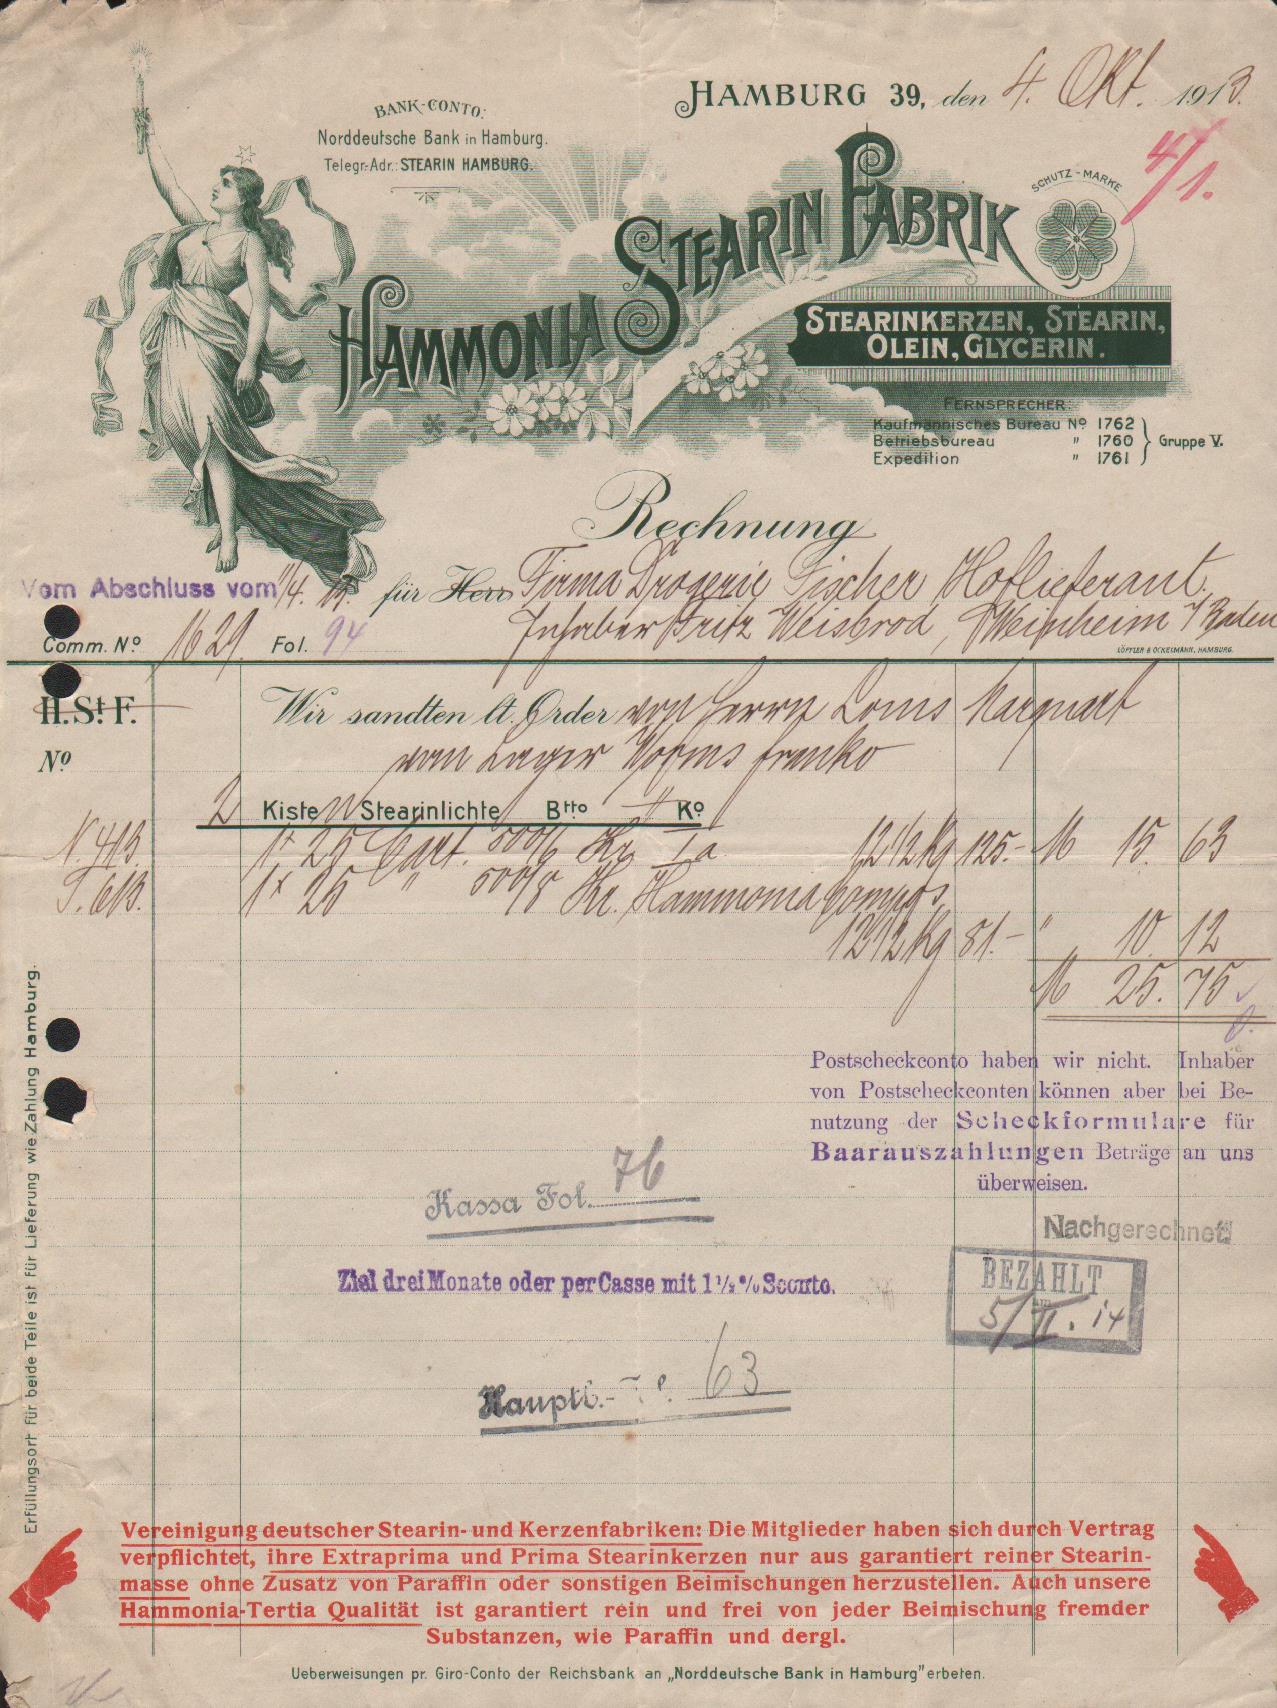 BANK-CONTO:
Norddeutsche Bank in Hamburg.
Telegr.-Adr.: STEARIN HAMBURG.
HAMBURG 39, den 4. Okt. 1913.
4/1.
SCHUTZ-MARKE
HAMMONIA STEARIN FABRIK
STEARINKERZEN, STEARIN,
OLEIN, GLYCERIN.
FERNSPRECHER:
Kaufmännisches Bureau No 1762
Betriebsbureau " 1760
Expedition " 1761
Gruppe V.
Rechnung
Vom Abschluss vom
für Herrn Firma Drogerie Fischer Hoflieferant,
Inhaber Fritz Weisbrod, Weinheim i/Baden
Comm. No. 1629. Fol. 94
LÖFFLER & OCKELMANN, HAMBURG.
H. St. F. Wir sandten lt. Order von Herrn Louis Marquart
No. vom Lager Worms franko
2 Kisten Stearinlichte Btto " Ko
N. 413. 1 x 25 Cart. 500/6 Kr. Ia 12 1/2 Kg 125.- M 15. 63
T. 613. 1 x 25 " 500/8 Kr. Hammonia Compos.
12 1/2 Kg 81.- " 10. 12
M 25. 75
Postscheckconto haben wir nicht. Inhaber
von Postscheckconten können aber bei Be-
nutzung der Scheckformulare für
Baarauszahlungen Beträge an uns
überweisen.
Kassa Fol. 76
Nachgerechnet:
Ziel drei Monate oder per Casse mit 1 1/2 % Sconto.
BEZAHLT
5/II. 14
Hauptb.- 63
Erfüllungsort für beide Teile ist für Lieferung wie Zahlung Hamburg.
Vereinigung deutscher Stearin- und Kerzenfabriken: Die Mitglieder haben sich durch Vertrag
verpflichtet, ihre Extraprima und Prima Stearinkerzen nur aus garantiert reiner Stearin-
masse ohne Zusatz von Paraffin oder sonstigen Beimischungen herzustellen. Auch unsere
Hammonia-Tertia Qualität ist garantiert rein und frei von jeder Beimischung fremder
Substanzen, wie Paraffin und dergl.
Ueberweisungen pr. Giro-Conto der Reichsbank an „Norddeutsche Bank in Hamburg" erbeten.